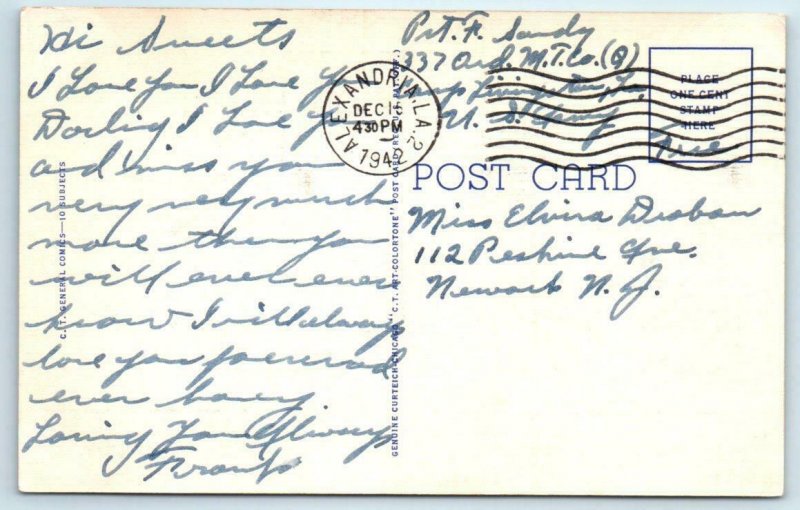 Hi Sweets
I Love You I Love You
Darling I Love You
and miss you
very very much
more then you
will ever ever
know I will always
love you forever and
ever honey
Loving You Always
Frank
C. T. GENERAL COMICS—10 SUBJECTS
GENUINE CURTEICH-CHICAGO "C. T. ART-COLORTONE" POST CARD
Pvt. F. Sandy
337 Ord. M.T. Co. (Q)
Camp Livingston, La.
U. S. Army
Free
ALEXANDRIA, LA. 2
DEC 18
4 30 PM
1942
PLACE
ONE CENT
STAMP
HERE
POST CARD
Miss Elvira
112 Peshine Ave.
Newark N. J.